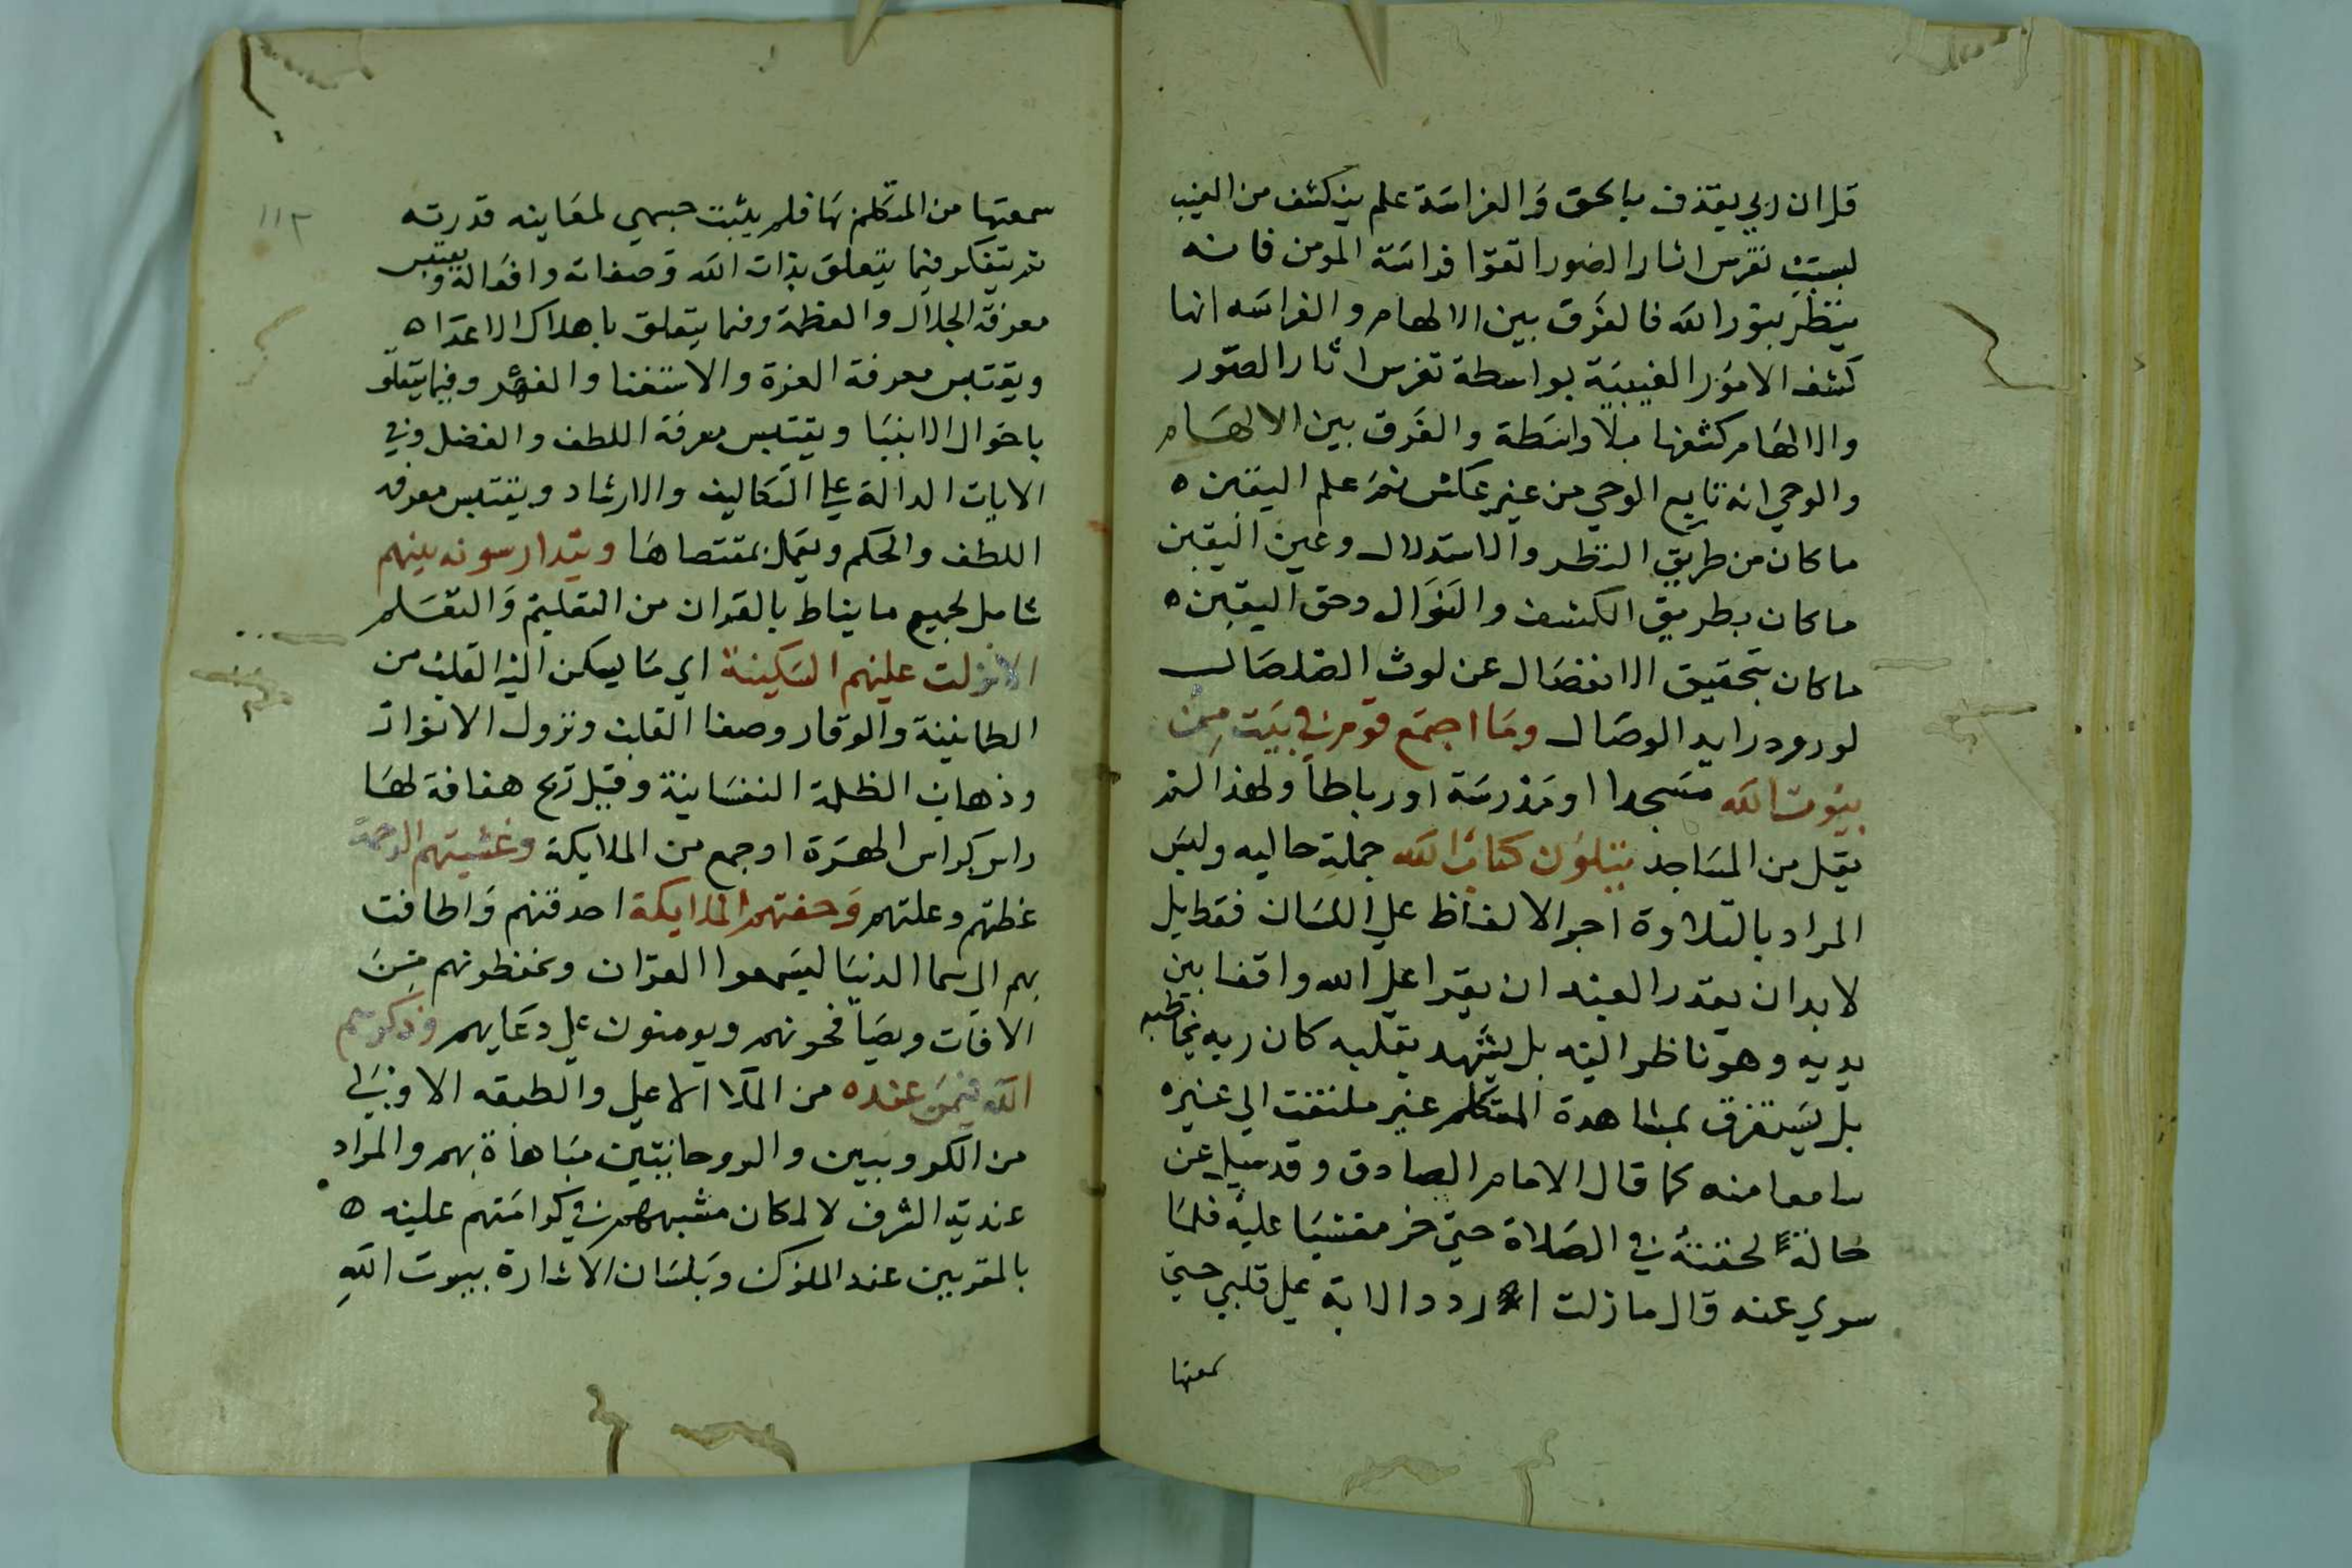 قل ان ربي يقذف بالحق وَالفراسَة علم ينكشف من الغيب
بسبب تفرس اثار الصور اتقوا فراسَة المومن فانه
ينظر بنور الله فالفَرق بين الالهام والفراسَه انها
كشف الامور الغيبيَة بواسطة تفرس اثار الصّور
والالهَام كشفها بلَا واسَطة والفَرق بين الالهَام
والوحي انه تابع الوحي من غير عكس ثمَ علم اليقين ه
ما كان من طريق النظر والاستدلال وعين اليقين
ما كان بطريق الكشف والنوَال وحق اليقين ه
ما كان بتحقيق الانفصَال عن لوث الصَلصَال
لورود رايد الوصَال ومَا اجتمَع قوم في بيَت مِن
بيَوت الله مسَجدا او مَدْرسَة او رباطا ولهذا لم
يقل من المسَاجد يتلوَن كتاب الله جملة حاليه وليس
المراد بالتلاوة اجرا الالفاظ على اللسَان فقط بل
لا بد ان يقدر العبد ان يقرا على الله واقفا بين
يديه وهو ناظر اليَه بل يشهد بقلبه كان ربه يخاطبه
بل يسَتغرق بمشاهدة المتكلم غير ملتفت الى غيره
سامعا منه كما قال الامام الصادق وقد سيل عن
حَالة لحقته في الصَلاة حتى خر مغشيَا عليه فلمَا
سري عنه قال ما زلت اردد الاية على قلبي حتى
سمعتها
١١٢
سمعتها من المتكلم بهَا فلم يثبت جسمي لمعَاينه قدرته
ثم يتفكر فيما يتعلق بذات الله وصفاته وافعَاله ويقتبس
معرفة الجلال والعظمة وفيما يتعلق باهلاك الاعدَا ه
ويقتبس معرفة العزة والاستغنا والقهر وفيما يتعلق
باحوَال الانبيَا ويقتبس معرفة اللطف والفضل وفي
الايات الدالة على التكاليف والارشاد ويقتبس معرفه
اللطف والحكم ويعَمل بمقتضاهَا ويتدارسونه بينهم
شامل لجميع ما يناط بالقران من التعليم وَالتعَلم
الا نزلت عليهم السَكينة اي مَا يسكن اليه القلب من
الطمانينة والوقار وصفا القلب ونزول الانوار
وذهاب الظلمة النفسَانية وقيل ريح هفافة لهَا
راس كراس الهرة او جمع من الملايكة وغشيتهم الرحمة
غطتهم وعلتهم وَحفتهم الملايكة احدقتهم وَاطافت
بهم الى سما الدنيَا ليسَمعوا القران ويحفظونهم مِن
الافات ويصَافحونهم ويومنون على دعَايهم وذكرهم
الله فيمَن عنده من الملا الاعلى والطبقه الاولي
من الكروبيين والروحانيين مبَاهاة بهم والمراد
عنديَة الشرف لا المكان مشبههم في كرامَتهم عليه ه
بالمقربين عند الملوَك وَبلسَان الاشارة بيوت اللهِ